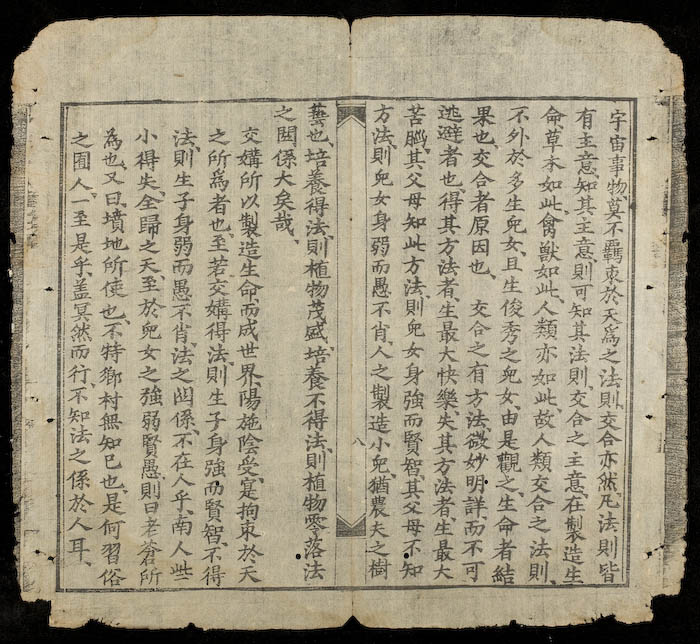 宇宙事物、莫不羈束於天爲之法則、交合亦然、凡法則皆
有主意、知其主意、則可知其法則、交合之主意、在製造生
命、草木如此、禽獸如此、人類亦如此、故人類交合之法則、
不外於多生兒女、且生俊秀之兒女、由是觀之、生命者結
果也、交合者原因也、交合之有方法、微妙明詳、而不可
逃避者也、得其方法者、生最大快樂、失其方法者、生最大
苦腦、其父母知此方法、則兒女身強而賢智、其父母不知
方法、則兒女身弱而愚不肖、人之製造小兒、猶農夫之樹
八
藝也、培養得法、則植物茂盛、培養不得法、則植物零落、法
之關係大矣哉、
交媾所以製造生命、而成世界、陽施陰受、寔拘束於天
之所爲者也、至若交媾得法、則生子身強而賢智、不得
法、則生子身弱而愚不肖、法之關係、不在人乎、南人些
小得失、全歸之天、至於兒女之強弱賢愚、則曰老蒼所
為也、又曰墳地所使也、不特鄉村無知已也、是何習俗
之囿人、一至是乎、盖冥然而行、不知法之係於人耳、